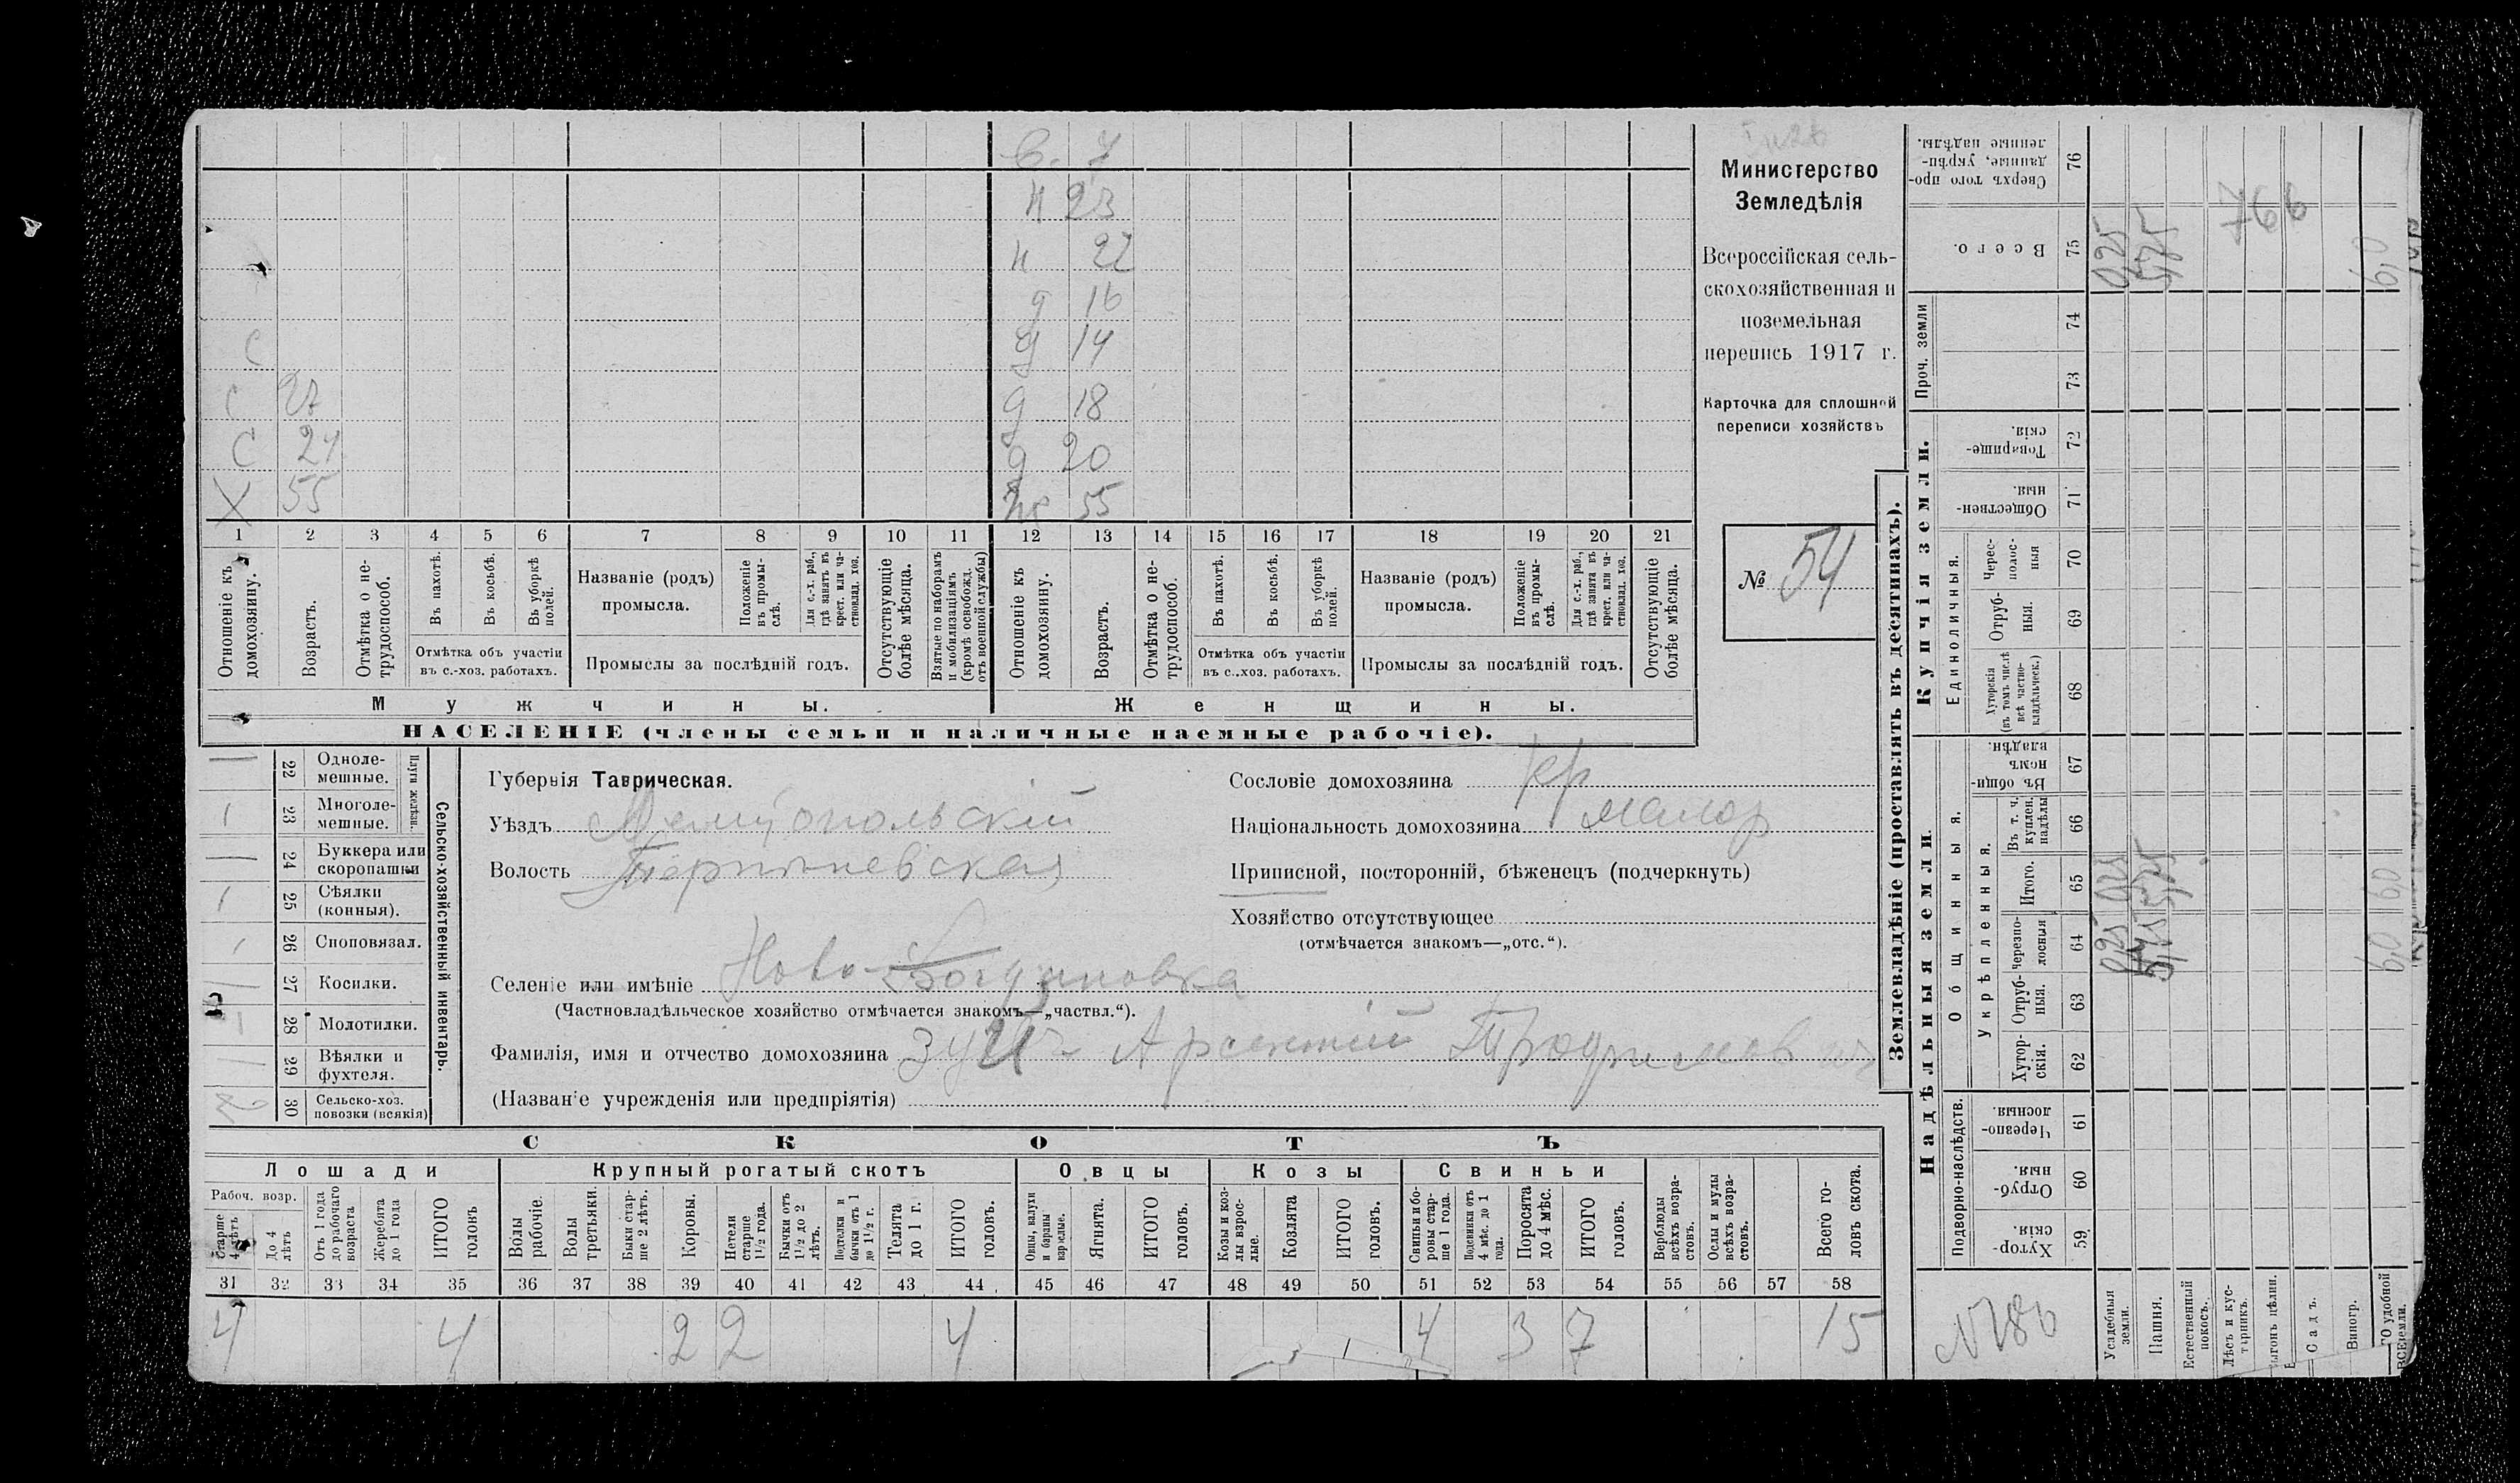 в. 7
н 23
н 22
д 16
с д 14
с 27 д 18
с 24 д 20
Х 55 ж 55
1 2 3 4 5 6 7 8 9 10 11 12 13 14 15 16 17 18 19 20 21
Отношеніе къ домохозяину.
Возрастъ.
Отмѣтка о нетрудоспособ.
Въ пахотѣ.
Въ косьбѣ.
Въ уборкѣ полей.
Отмѣтка объ участіи
въ с.-хоз. работахъ.
Названіе (родъ)
промысла.
Положеніе въ промыслѣ.
Для с.-х. раб., гдѣ занятъ въ крест. или частновлад. хоз.
Промыслы за послѣдній годъ.
Отсутствующіе болѣе мѣсяца.
Взятые по наборамъ и мобилизаціямъ (кромѣ освобожд. отъ военной службы)
Отношеніе къ домохозяину.
Возрастъ.
Отмѣтка о нетрудоспособ.
Въ пахотѣ.
Въ косьбѣ.
Въ уборкѣ полей.
Отмѣтка объ участіи
въ с.-хоз. работахъ.
Названіе (родъ)
промысла.
Положеніе въ промыслѣ.
Для с.-х. раб., гдѣ занята въ крест. или частновлад. хоз.
Промыслы за послѣдній годъ.
Отсутствующіе болѣе мѣсяца.
Мужчины. Женщины.
НАСЕЛЕНІЕ (члены семьи и наличные наемные рабочіе).
Министерство
Земледѣлія
Всероссійская сель-
скохозяйственная и
поземельная
перепись 1917 г.
Карточка для сплошной
переписи хозяйствъ
№ 54
Сельско-хозяйственный инвентарь.
Плуги желѣзн.
22 Одноле-
мешные.
1 23 Многоле-
мешные.
24 Буккера или
скоропашки
1 25 Сѣялки
(конныя).
26 Сноповязал.
27 Косилки.
28 Молотилки.
29 Вѣялки и
фухтеля.
30 Сельско-хоз.
повозки (всякія)
Губернія Таврическая.
Уѣздъ Мелитопольскій
Волость Терпеневская
Селеніе или имѣніе Ново-Богдановка
(Частновладѣльческое хозяйство отмѣчается знакомъ—„частвл.“).
Фамилія, имя и отчество домохозяина Арсентій Трофимов
(Названіе учрежденія или предпріятія)
Сословіе домохозяина кр
Національность домохозяина малор
Приписной, посторонній, бѣженецъ (подчеркнуть)
Хозяйство отсутствующее
(отмѣчается знакомъ—„отс.“).
СКОТЪ
Лошади Крупный рогатый скотъ Овцы Козы Свиньи
Рабоч. возр.
Старше 4 лѣтъ
До 4 лѣтъ
Отъ 1 года до рабочаго возраста
Жеребята до 1 года
ИТОГО головъ
Волы рабочіе.
Волы третьяки.
Быки старше 2 лѣтъ.
Коровы.
Нетели старше 1½ года.
Бычки отъ 1½ до 2 лѣтъ.
Подтелки и бычки отъ 1 до 1½ г.
Телята до 1 г.
ИТОГО головъ.
Овцы, валухи и бараны взрослые.
Ягнята.
ИТОГО головъ.
Козы и козлы взрослые.
Козлята
ИТОГО головъ.
Свиньи и боровы старше 1 года.
Подсвинки отъ 4 мѣс. до 1 года.
Поросята до 4 мѣс.
ИТОГО головъ.
Верблюды всѣхъ возрастовъ.
Ослы и мулы всѣхъ возрастовъ.
Всего головъ скота.
31 32 33 34 35 36 37 38 39 40 41 42 43 44 45 46 47 48 49 50 51 52 53 54 55 56 57 58
4 4 2 2 4 4 3 7 15
Землевладѣніе (проставлять въ десятинахъ).
Надѣльныя земли
Купчія земли.
Проч. земли
Общинныя.
Укрѣпленныя.
Единоличныя.
Подворно-наслѣдств.
76 Сверхъ того проданные, укрѣпленные надѣлы.
75 Всего. 0,25 5,75 6,0
766
74
73
72 Товарищескія.
71 Общественныя.
70 Чрезполосныя
69 Отрубныя.
68 Хуторскія (въ томъ числѣ всѣ частновладѣльческ.)
67 Въ общинномъ владѣн.
66 Въ т. ч. куплен. надѣлы
65 Итого. 0,25 5,75 6,0
64 Черезполосныя 0,25 5,75 6,0
63 Отрубныя.
62 Хуторскія.
61 Черезполосныя.
60 Отрубныя.
59 Хуторскія.
Усадебныя земли.
Пашня.
Естественный покосъ.
Лѣсъ и кустарникъ.
Садъ.
Виногр.